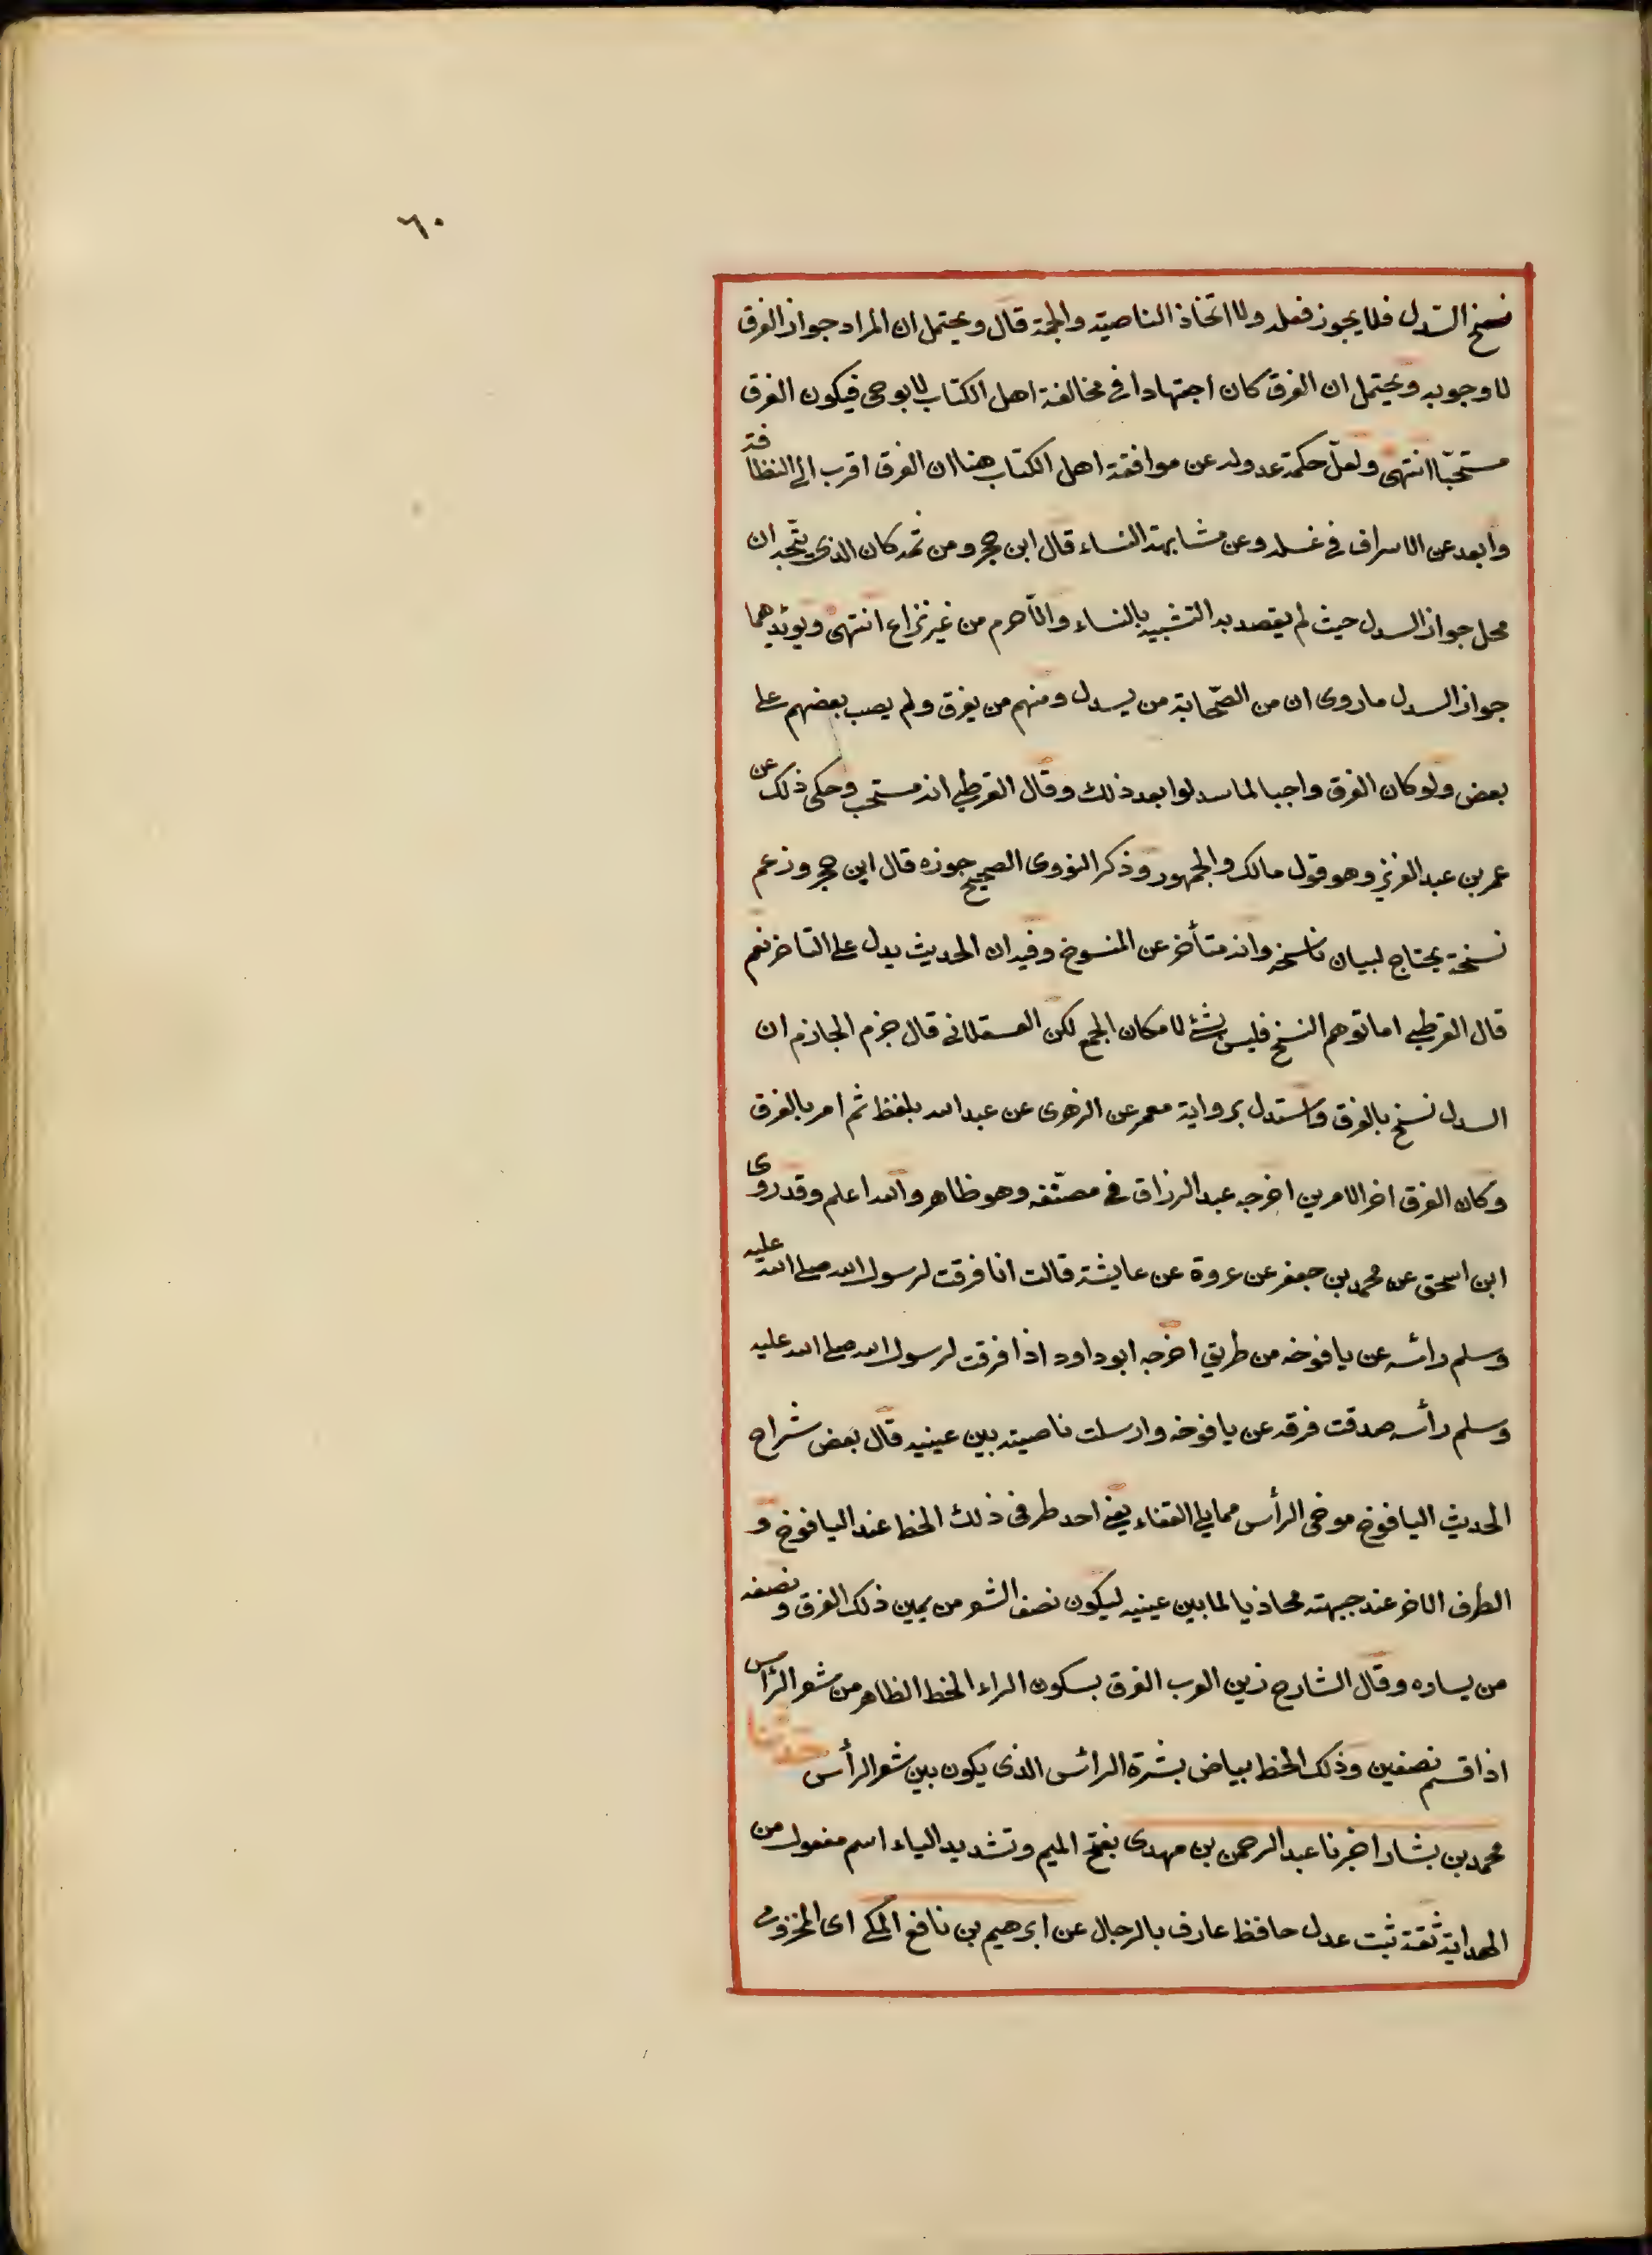 ٦٠
نسخ السّدل فلا يجوز فعله ولا اتخاذ الناصية والجمة قال ويحتمل ان المراد جواز الفرق
لا وجوبه ويحتمل ان الفرق كان اجتهادا في مخالفة اهل الكتاب لا بوحى فيكون الفرق
مستحبّا انتهى ولعلّ حكمة عدوله عن موافقة اهل الكتاب هنا ان الفرق اقرب الى النظافة
وابعد عن الاسراف في غسله وعن مشابهة النساء قال ابن حجر ومن ثمه كان الذى يتّجه ان
محل جواز السدل حيث لم يقصد به التشبيه بالنساء والّا حرم من غير نزاع انتهى ويؤيدهما
جواز السدل ما روى ان من الصّحابة من يسدل ومنهم من يفرق ولم يعب بعضهم على
بعض ولو كان الفرق واجبا لما سدلوا بعد ذلك وقال القرطبى انه مستحب وحكى ذلك عن
عمر بن عبد العزيز وهو قول مالك والجمهور وذكر النووى الصحيح جوزه قال ابن حجر وزعم
نسخة يحتاج لبيان ناسخه وانه متأخر عن المنسوخ وفيه ان الحديث يدل على التاخر نعم
قال القرطبى اما توهم النسخ فليس بشئ لامكان الجمع لكن العسقلانى قال جزم الجازم ان
السدل نسخ بالفرق واستدل برواية معمر عن الزهرى عن عبد الله بلفظ ثم امر بالفرق
وكان الفرق اخر الامرين اخرجه عبد الرزاق في مصنّفه وهو ظاهر والله اعلم وقد روى
ابن اسحق عن محمد بن جعفر عن عروة عن عايشة قالت انا فرقت لرسول الله صلى الله عليه
وسلم رأسه عن يافوخه من طريق اخرجه ابو داود اذا فرقت لرسول الله صلى الله عليه
وسلم رأسه صدقت فرقه عن يافوخه وارسلت ناصيته بين عينيه قال بعض شراح
الحديث اليافوخ موخى الرأس مما يلى القفاء يعنى احد طرفى ذلك الخط عند اليافوخ و
الطرف الاخر عند جبهته محاذيا لما بين عينيه ليكون نصف الشعر من يمين ذلك الفرق ونصفه
من يساره وقال الشارح زين العرب الفرق بسكون الراء الخط الظاهر من شعر الرأس
اذا قسم نصفين وذلك الخط بياض بشرة الرائس الذى يكون بين شعر الرأس حدثنا
محمد بن بشار اخبرنا عبد الرحمن بن مهدى بفتح الميم وتشديد الياء اسم مفعول من
الهداية ثقة ثبت عدل حافظ عارف بالرجال عن ابرهيم بن نافع المكى اى المخزومى